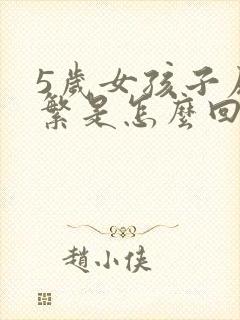 5歲女孩子
繁是怎麼回
趙小俠